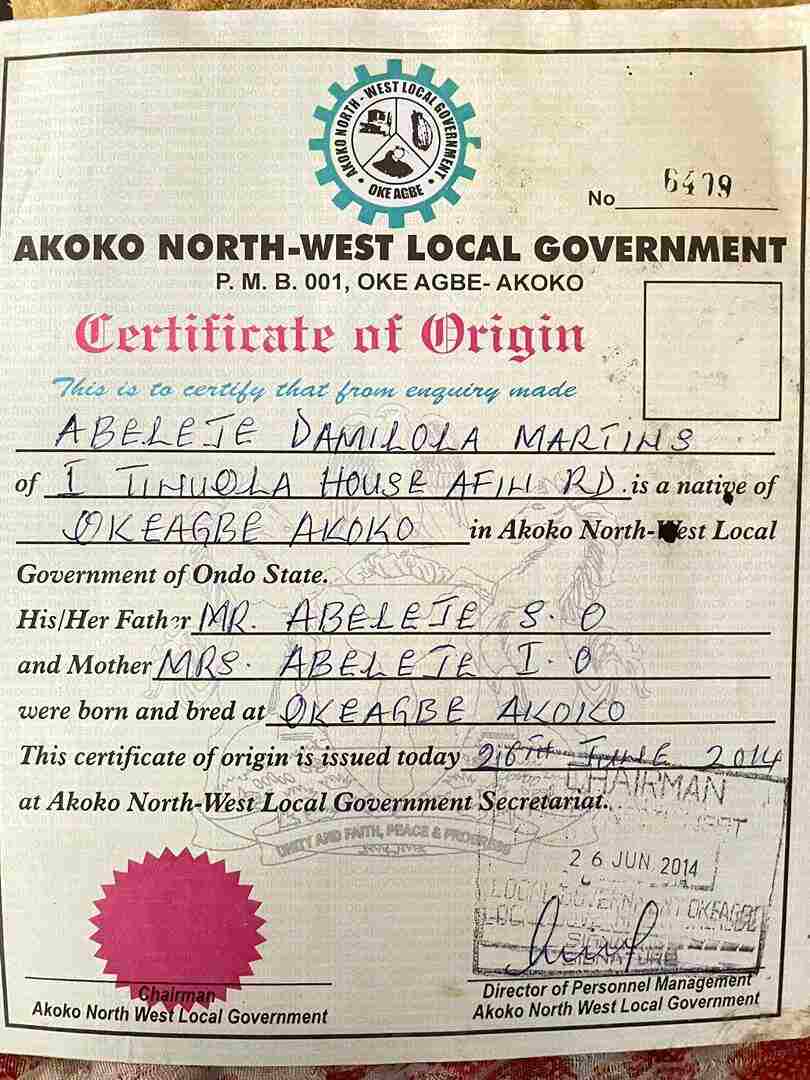 AKOKO NORTH-WEST LOCAL GOVERNMENT
OKE AGBE
No 6479
AKOKO NORTH-WEST LOCAL GOVERNMENT
P. M. B. 001, OKE AGBE- AKOKO
Certificate of Origin
This is to certify that from enquiry made
ABELEJE DAMILOLA MARTINS
of I TINUOLA HOUSE AFIN RD. is a native of
OKEAGBE AKOKO in Akoko North-West Local
Government of Ondo State.
His/Her Father MR. ABELEJE S. O
and Mother MRS. ABELEJE I. O
were born and bred at OKEAGBE AKOKO
This certificate of origin is issued today 26TH JUNE 2014
at Akoko North-West Local Government Secretariat.
CHAIRMAN
UNITY AND FAITH, PEACE & PROGRESS
26 JUN 2014
LOCAL GOVERNMENT OKEAGBE
SIGNATURE
Chairman
Akoko North West Local Government
Director of Personnel Management
Akoko North West Local Government